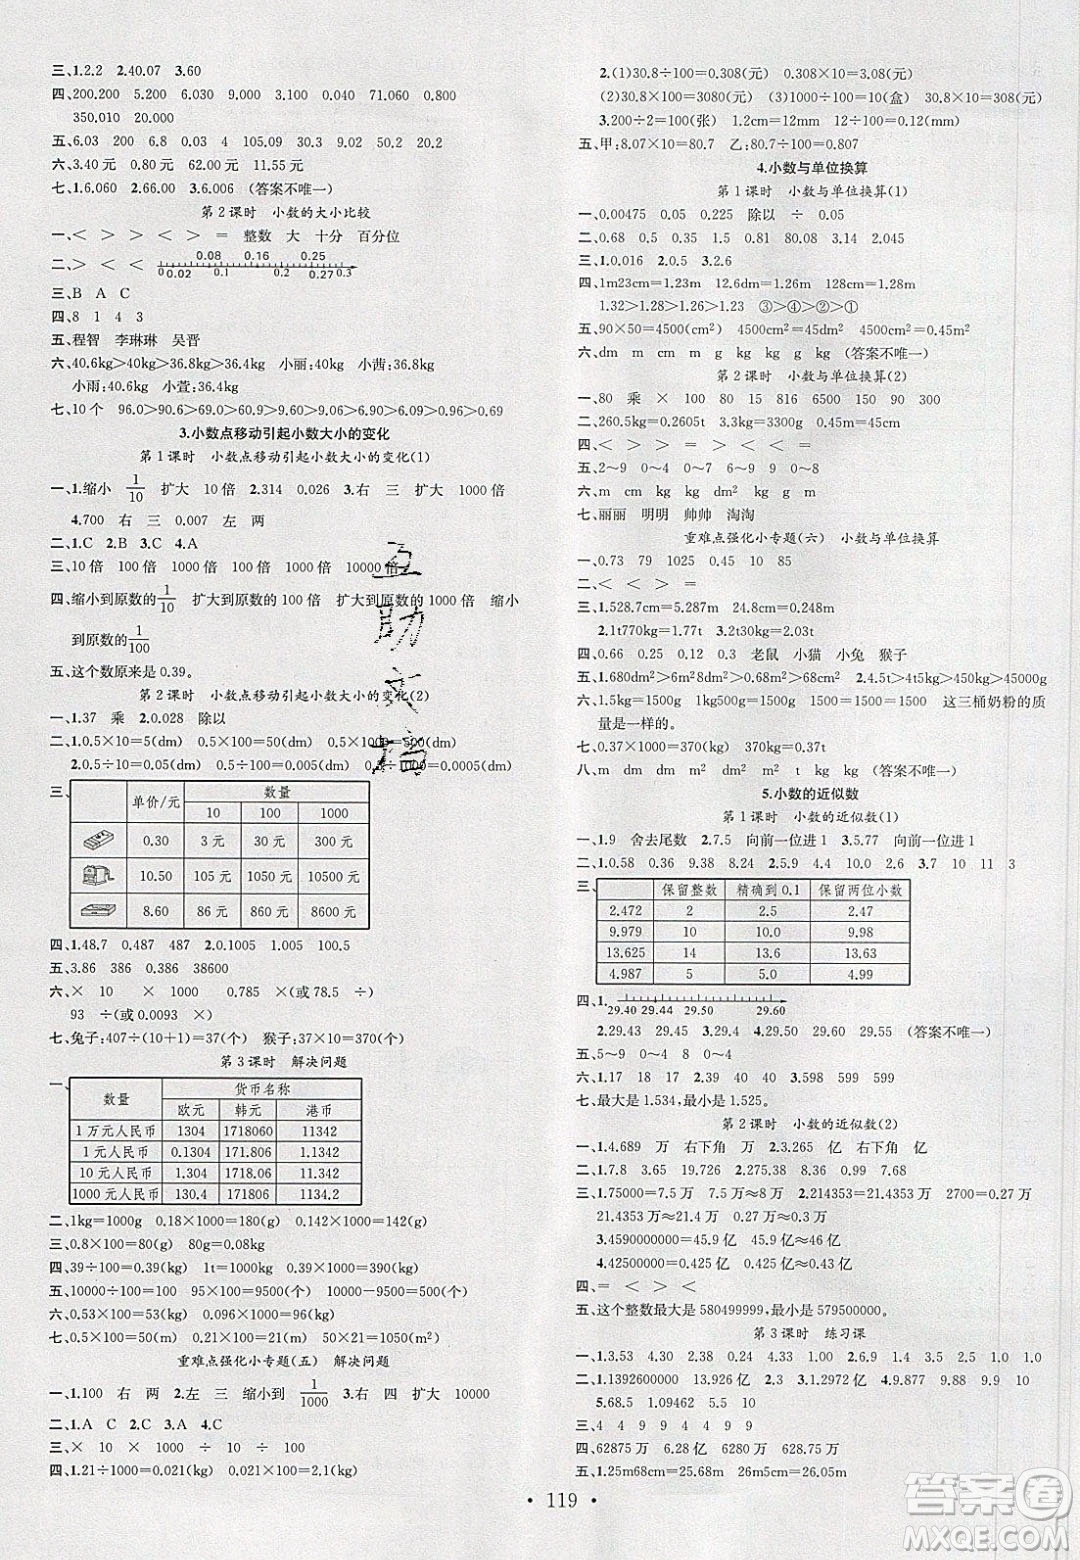 三、1.2.2　2.40.07　3.60
四、200.200　5.200　6.030　9.000　34.040　71.060　0.800
350.010　20.000
五、6.03　200　9.8　0.8　105.09　30.05　20.2
六、3.40 元　0.80 元　62.00 元　11.55 元
七、1.6.060　2.66.00　3.6.006　(答案不唯一)
第 2 课时　小数的大小比较
一、＜　＞　＞　＜　＞　＝　整数　大　十分　百分位
二、＞　＜　＜　0.08　0.16　0.25
0　0.02　0.1　0.2　0.27　0.3
三、B　A　C
四、8　1　4　3
五、程智　李琳琳　吴晋
六、40.6kg＞40kg＞36.8kg＞36.4kg　小丽:40kg　小茜:36.8kg
小雨:40.6kg　小萱:36.4kg
七、10 个　96.0＞90.6＞69.0＞60.9＞9.60＞9.06＞6.90＞6.09＞0.96＞0.69
3.小数点移动引起小数大小的变化
第 1 课时　小数点移动引起小数大小的变化(1)
一、1.缩小　1/10　扩大　10 倍　2.314　0.026　3.右　三　扩大　1000 倍
4.700　右　三　0.007　左　两
二、1.C　2.B　3.C　4.A
三、10 倍　100 倍　1000 倍　100 倍　1000 倍　10000 倍
四、缩小到原数的1/10　扩大到原数的 100 倍　扩大到原数的 1000 倍　缩小
到原数的1/100
五、这个数原来是 0.39。
第 2 课时　小数点移动引起小数大小的变化(2)
一、1.37　乘　2.0.028　除以
二、1.0.5×10＝5(dm)　0.5×100＝50(dm)　0.5×1000＝500(dm)
2.0.5÷10＝0.05(dm)　0.5÷100＝0.005(dm)　0.5÷1000＝0.0005(dm)
三、
单价/元　数量
10　100　1000
0.30　3 元　30 元　300 元
10.50　105 元　1050 元　10500 元
8.60　86 元　860 元　8600 元
四、1.48.7　0.487　487　2.0.1005　1005　100.5
五、3.86　386　0.386　38600
六、×　10　×　1000　0.785　×(或 78.5　÷)
93　÷(或 0.0093　×)
七、兔子:407÷(10＋1)＝37(个)　猴子:37×10＝370(个)
第 3 课时　解决问题
一、
数量　货币名称
欧元　韩元　港币
1 万元人民币　1304　1718060　11342
1 元人民币　0.1304　171.806　1.1342
10 元人民币　1.304　1718.06　11.342
1000 元人民币　130.4　171806　1134.2
二、1kg＝1000g　0.18×1000＝180(g)　0.142×1000＝142(g)
三、0.8×100＝80(g)　80g＝0.08kg
四、39÷100＝0.39(kg)　1t＝1000kg　0.39×1000＝390(kg)
五、10000÷100＝100　95×100＝9500(个)　10000－9500＝500(个)
六、0.53×100＝53(kg)　0.096×1000＝96(kg)
七、0.5×100＝50(m)　0.21×100＝21(m)　50×21＝1050(m²)
重难点强化小专题(五)　解决问题
一、1.100　右　两　2.左　三　缩小到　1/1000　3.右　四　扩大　10000
二、1.A　C　2.C　A
三、×　10　×　1000　÷　10　÷　100
四、1.21÷1000＝0.021(kg)　0.021×100＝2.1(kg)
2.(1)30.8÷100＝0.308(元)　0.308×10＝3.08(元)
(2)30.8×100＝3080(元)　(3)1000÷100＝10(盒)　30.8×10＝308(元)
3.200÷2＝100(张)　1.2cm＝12mm　12÷100＝0.12(mm)
五、甲:8.07×10＝80.7　乙:80.7÷100＝0.807
4.小数与单位换算
第 1 课时　小数与单位换算(1)
一、0.00475　0.05　0.225　除以　÷　0.05
二、0.68　0.25　0.032　2.08　3.12　2.045
三、1.0.016　2.0.5　3.2.6
四、1m23cm＝1.23m　126cm＝1.26m　128cm＝1.28m
1.32＞1.28＞1.26＞1.23　③＞④＞②＞①
五、90×50＝4500(cm²)　4500cm²＝45dm²＝0.45m²
六、dm　m　cm　m　g　kg　kg　kg　(答案不唯一)
第 2 课时　小数与单位换算(2)
一、80　乘　×　100　80　15　816　6500　150　900
二、260.5kg＝0.2605t　3.3kg＝3300g　0.45m＝45cm
四、＜　＞　＜　＞　＞　＞
五、2～9　0～4　0～7　5～9
六、m　cm　kg　dm²　m²　m　(答案不唯一)
七、丽丽　明明　帅帅　淘淘
重难点强化小专题(六)　小数与单位换算
一、0.73　79　1025　0.45　10　85
二、＜　＜　＞　＝
三、1.528.7cm＝5.287m　24.8cm＝0.248m
2.1t770kg＝1.77t　3.2t30kg＝2.03t
四、0.66　25　0.33　0.12　老鼠　小猫　小兔　猴子
五、1.680dm²＞6m²8dm²＞0.68m²　2.4.5t＞4t5kg＞450kg＞45000g
六、1.5kg＝1500g　1kg500g＝1500g　1500g＝1500g　这三桶奶粉的质
量是一样的。
七、0.37×1000＝370(kg)　370kg＝0.37t
八、m　dm　dm　m²　m²　t　kg　kg　(答案不唯一)
5.小数的近似数
第 1 课时　小数的近似数(1)
一、1.9　舍去尾数　2.7.5　向前一位进 1　3.5.77　向前一位进 1
二、1.0.58　0.36　9.38　8.24　2.5.9　4.4　42.0　0.9　3.7　10　11　3
三、
保留整数　精确到 0.1　保留两位小数
2.472　2　2.5　2.47
9.979　10　10.0　9.98
13.625　14　13.6　13.63
4.987　5　5.0　4.99
四、1.
29.40　29.44　29.50　29.60
2.29.43　29.45　3.29.4　4.29.50　29.48　29.55　(答案不唯一)
五、5～9　0～4　0～4　5～9
六、1.17　18　17　2.39　40　40　3.599　599　599
七、最大是 1.534,最小是 1.525。
第 2 课时　小数的近似数(2)
一、1.4.689　万　右下角　万　2.3.265　亿　右下角　亿
二、1.7.8　45.16　3.08　19.726　2.30.2　43.4　0.1　8.6
三、1.75000＝7.5 万　7.5 万≈8 万　2.214353＝21.4353 万　2700＝0.27 万
21.4353 万≈21.4 万　0.27 万≈0.3 万
3.4590000000＝45.9 亿　45.9 亿≈46 亿
4.42500000＝0.425 亿　0.425 亿≈0.4 亿
四、＝　＜　＞　＜
五、这个整数最大是 580499999,最小是 579500000。
第 3 课时　练习课
一、1.3.53　4.30　7.38　5.00　1.42　2.6.9　1.4　3.2　12.0　4.8
二、1.1392600000　13.926　13.93　2.10　3.1.2090　4.9.885　9.9　10
5.68.5　1.09462　5.55　4.72
三、4　4　9　4　9　4　9　9
四、62875 万　6.28 亿　6280 万　628.75 万
五、1.25m68cm＝25.68m　26m5cm＝26.05m
119
互助文培
答案圈
MXQE.COM